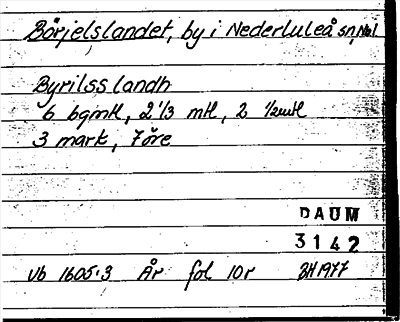 Börjelslandet, by i Nederluleå sn, Nbl
Byrilss landh
6 bgmtl, 2 1/3 mtl, 2 1/2mtl
3 mark, 7 öre
DAUM
3142
Vb 1605:3 År fol 10r BH1977